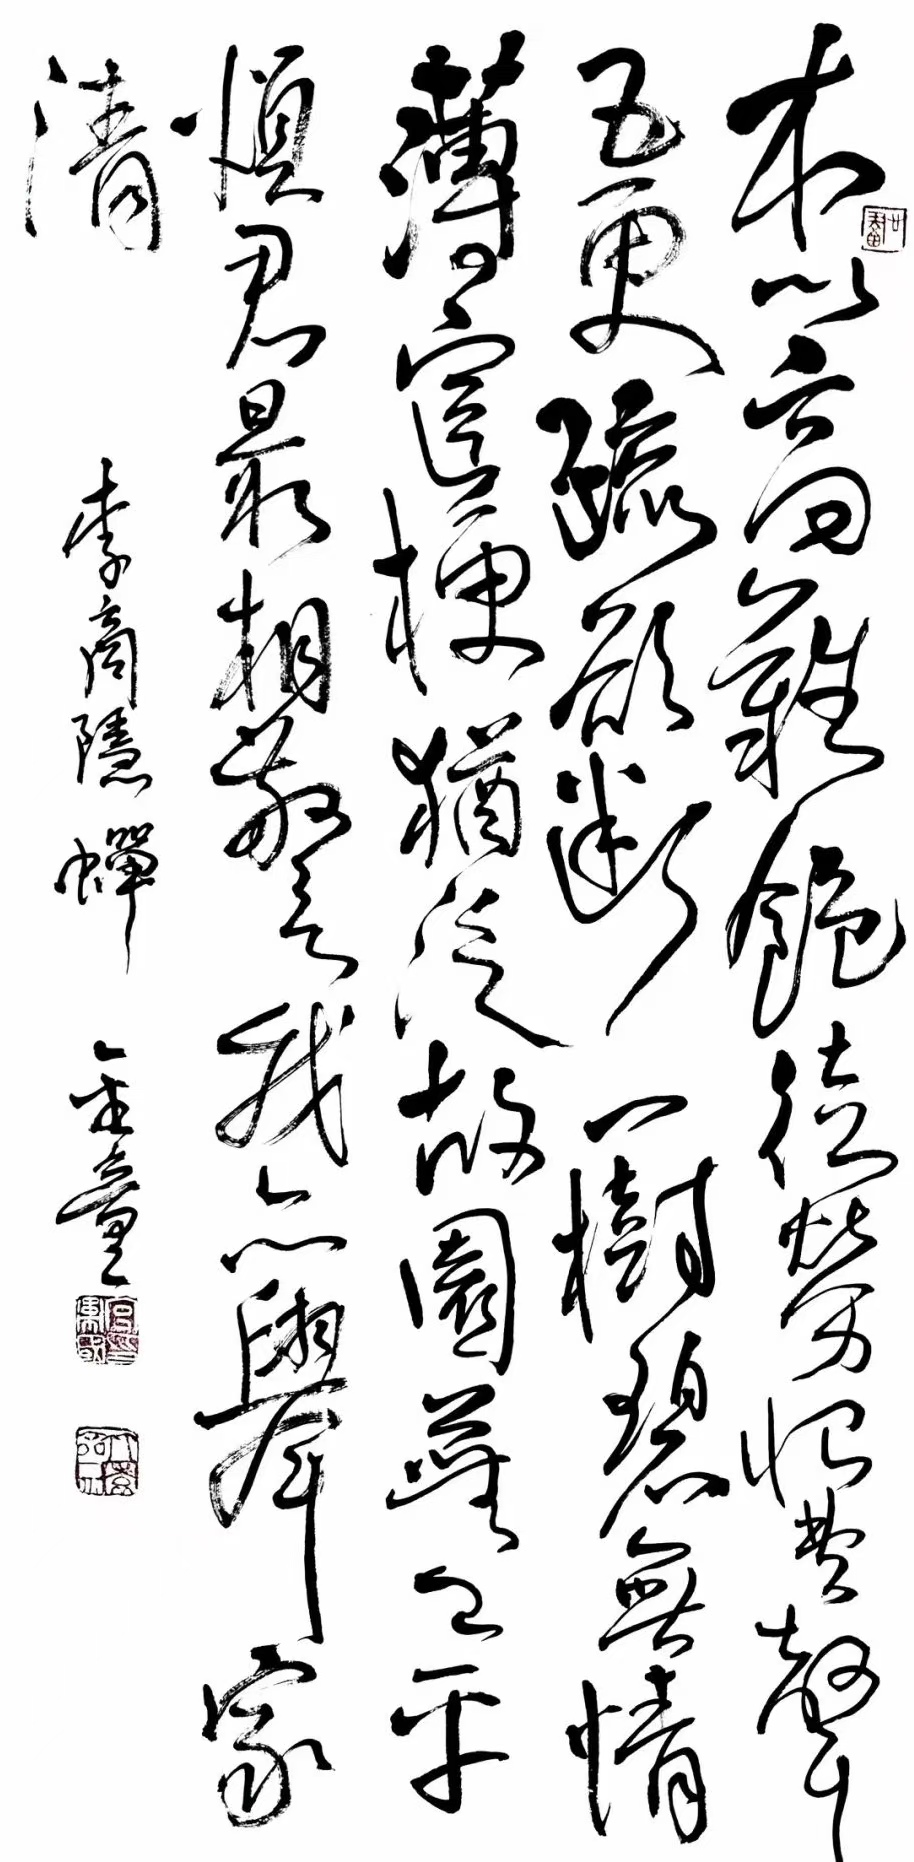 本以高難飽徒勞恨費聲
五更疏欲斷一樹碧無情
薄宦梗猶泛故園蕪已平
煩君最相警我亦舉家
清
李商隱蟬